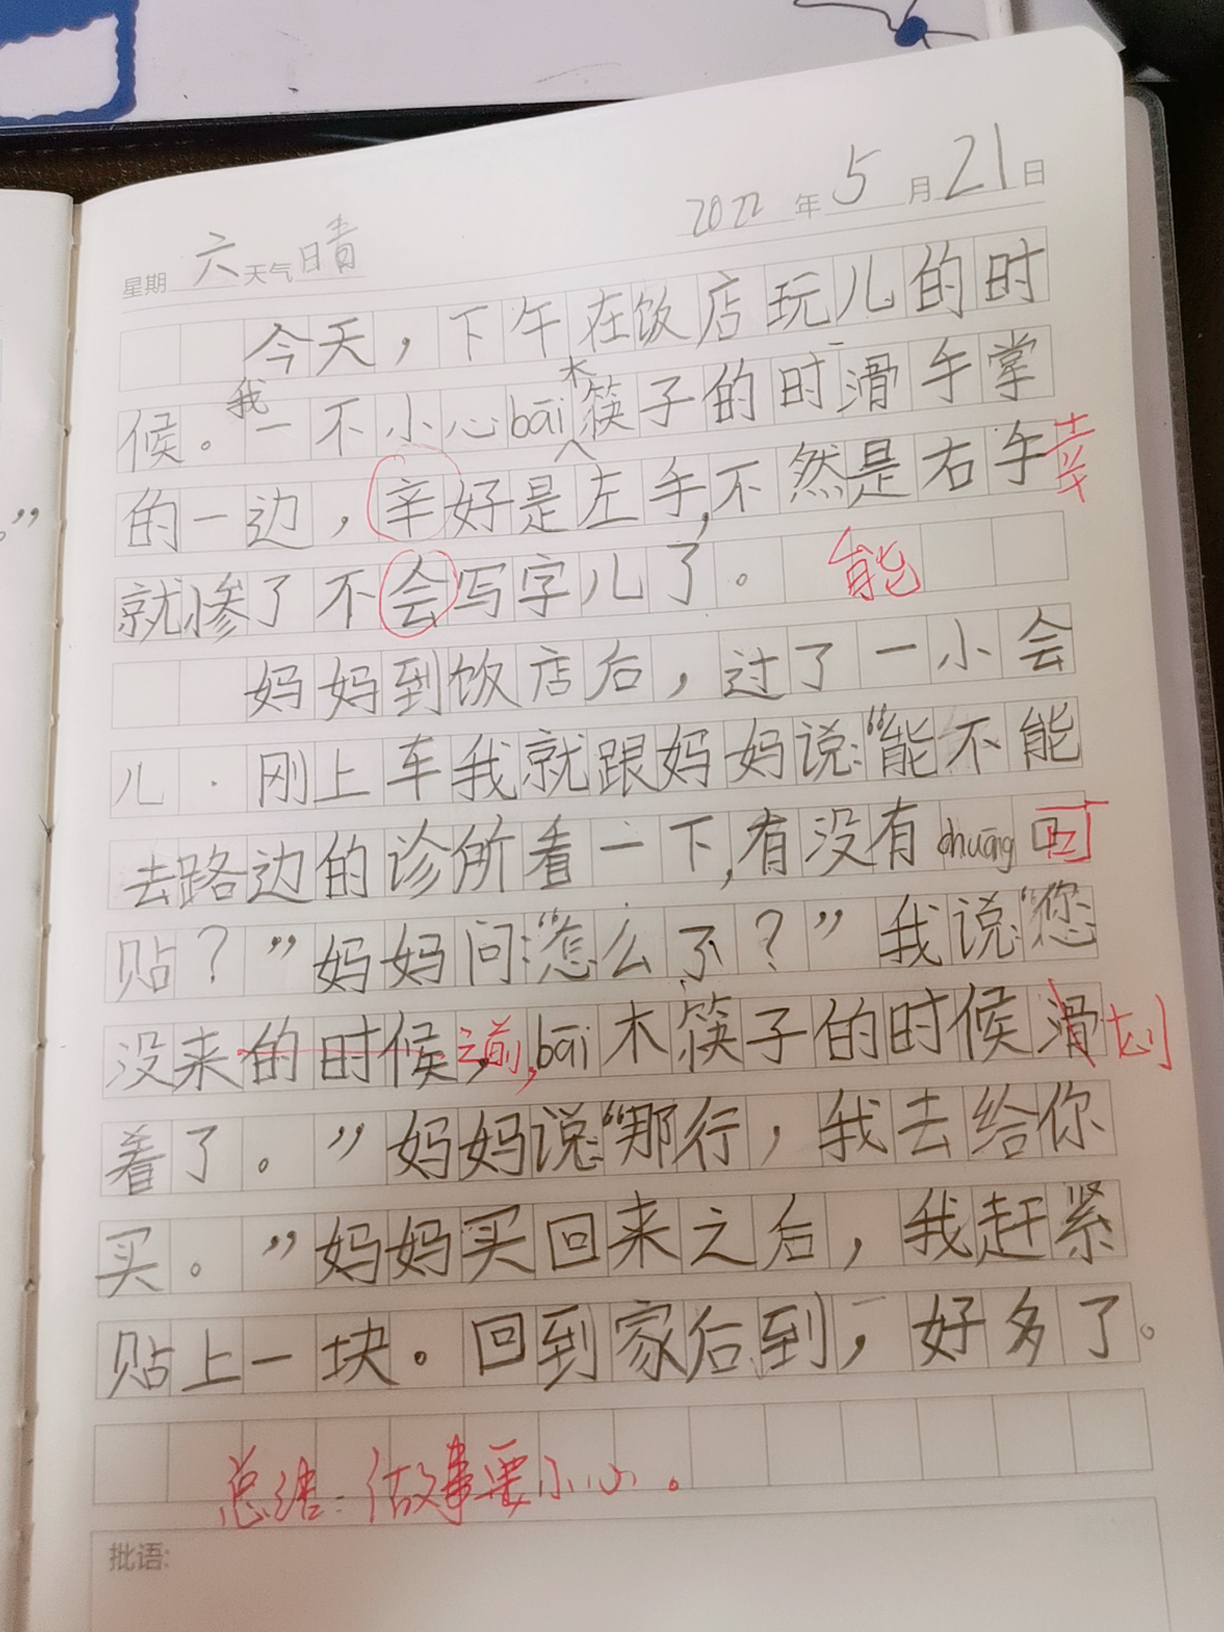 2022 年 5 月 21 日
星期 六 天气 晴
今天，下午在饭店玩儿的时
候。我一不小心bāi木筷子的时滑手掌
的一边，辛好是左手，不然是右手 幸
就惨了不会写字儿了。 能
妈妈到饭店后，过了一小会
儿.刚上车我就跟妈妈说:“能不能
去路边的诊所看一下，有没有chuāng可
贴？”妈妈问:“怎么了？”我说:“您
没来的时候，之前，bāi木筷子的时候滑 划
着了。”妈妈说:“那行，我去给你
买。”妈妈买回来之后，我赶紧
贴上一块。回到家后到，好多了。
总结：做事要小心。
批语:
”